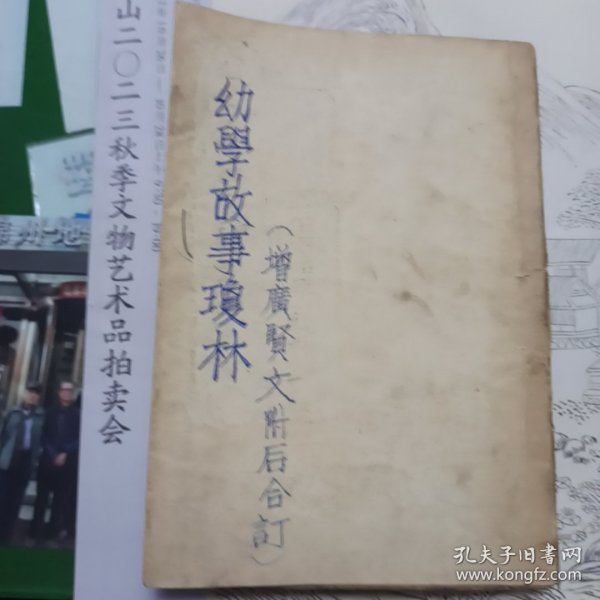 幼學故事瓊林
（增廣賢文附后合訂）
山二〇二三秋季文物艺术品拍卖会
孔夫子旧书网
www.kongfz.com